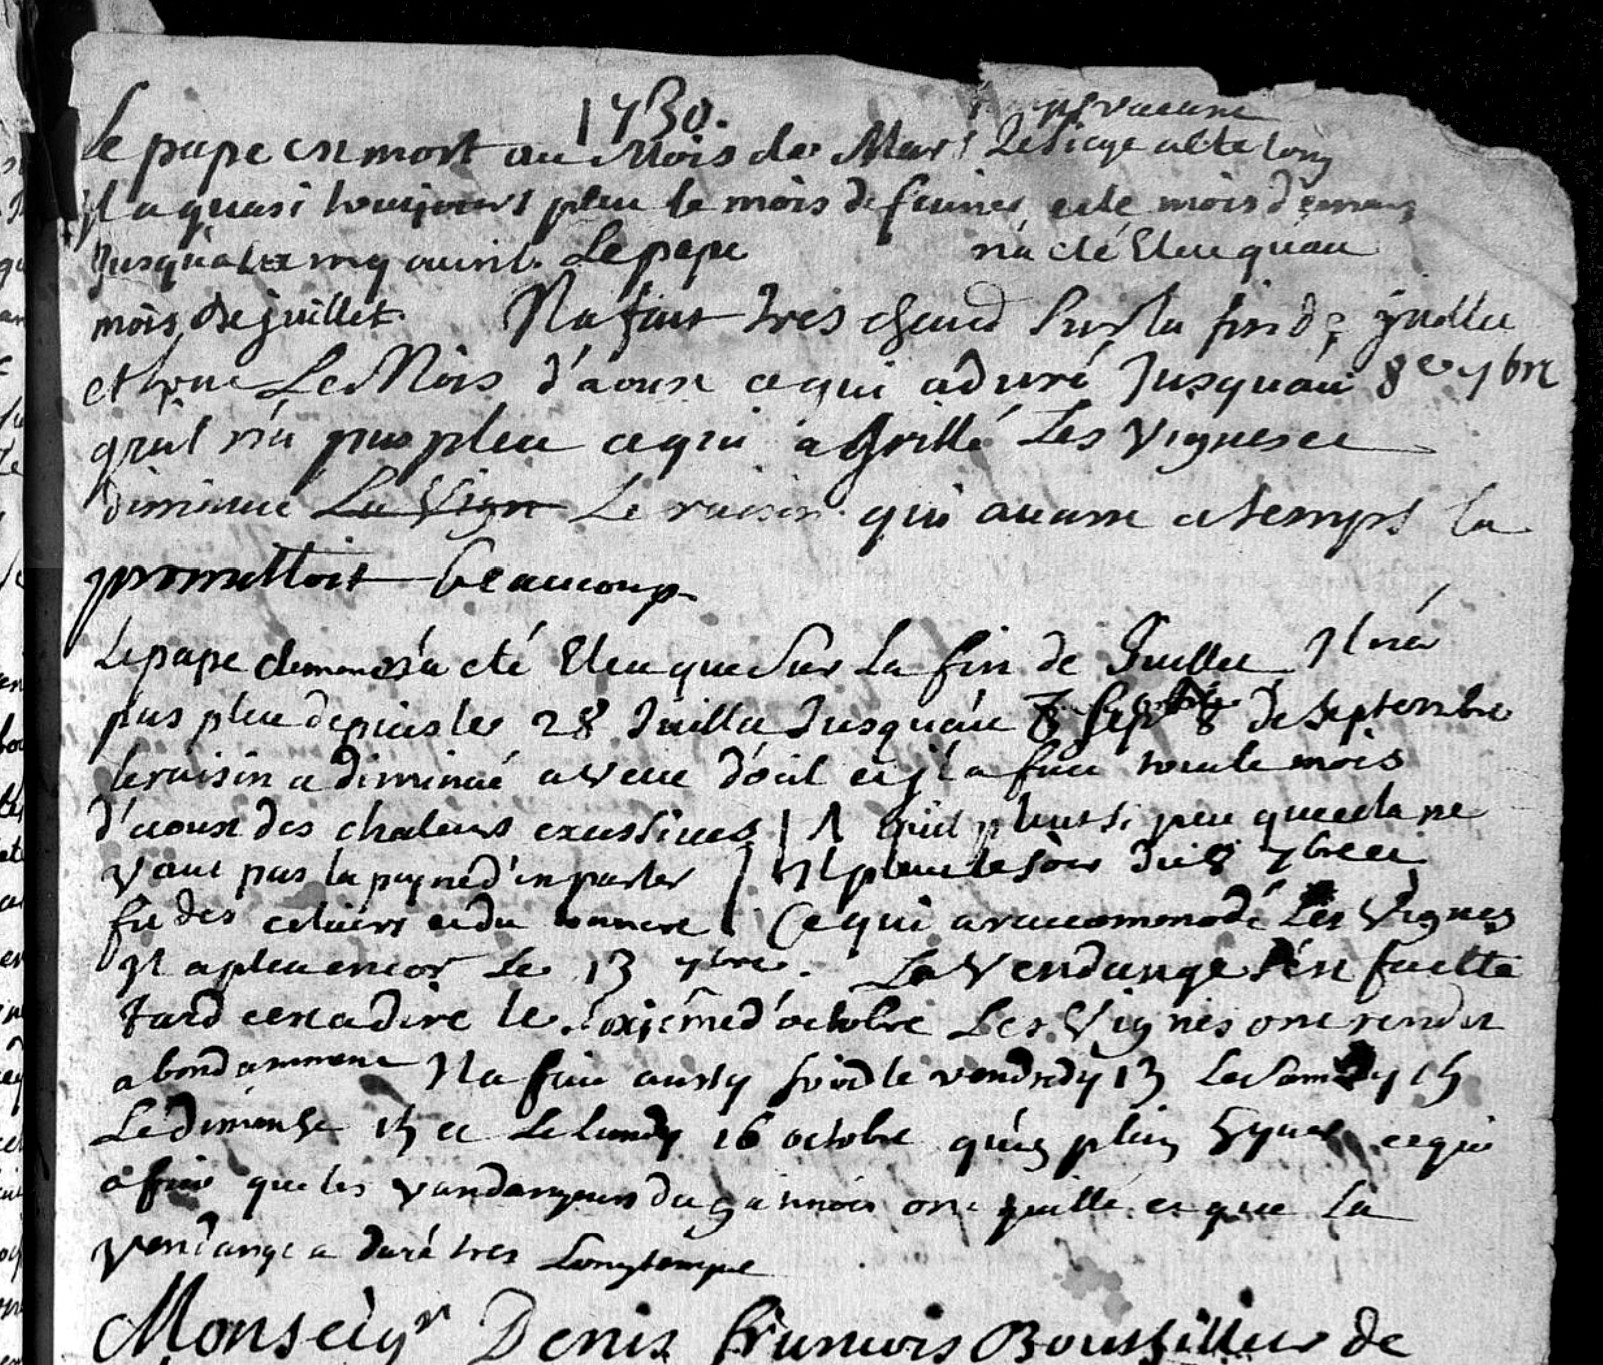 1730.
vacant
Le pape est mort au Mois de Mars Le siege a été long
Il a quasi toujours pleu le mois de fevrier et le mois de mars
Jusqua la my avril. Le pape n'a eté Eleu quau
mois de juillet. Il a fait tres chaud sur la fin de juillet
et tout Le Mois d'aoust ce qui a duré Jusquau 8e 7bre
quil n'a pas pleu ce qui a Grillé Les Vignes et
diminué La Vign Le raisin qui avant ce temps la
promettoit beaucoup.
Le pape n'a eté Eleu que Sur La fin de Juillet Il n'a
pas pleu depuis le 28 Juillet Jusquau 8 de Septembre
le raisin a diminué a veue d'oeil et il a fait tout le mois
d'aoust des chaleurs excessives quil pleut si peu que cela ne
vaut pas la peyne d'en parler Il pleut le soir du 8 7bre et
fit des eclairs et du tonnere Ce qui a raccommodé Les Vignes
Il a pleu encor Le 13 7bre. La Vendange s'est faitte
tard c'est a dire le d'octobre Les Vignes ont rendu
abondamment Il a fait aussy froid le vendredy 13 Le Samedy 14
Le dimenche 15 et Le lundy 16 octobre qu'en plein hyver ce qui
a fait que les vandangeurs du gatinois ont quitté et que la
vendange a duré tres Longtemps
Monseigr Denis francois Bouthillier de